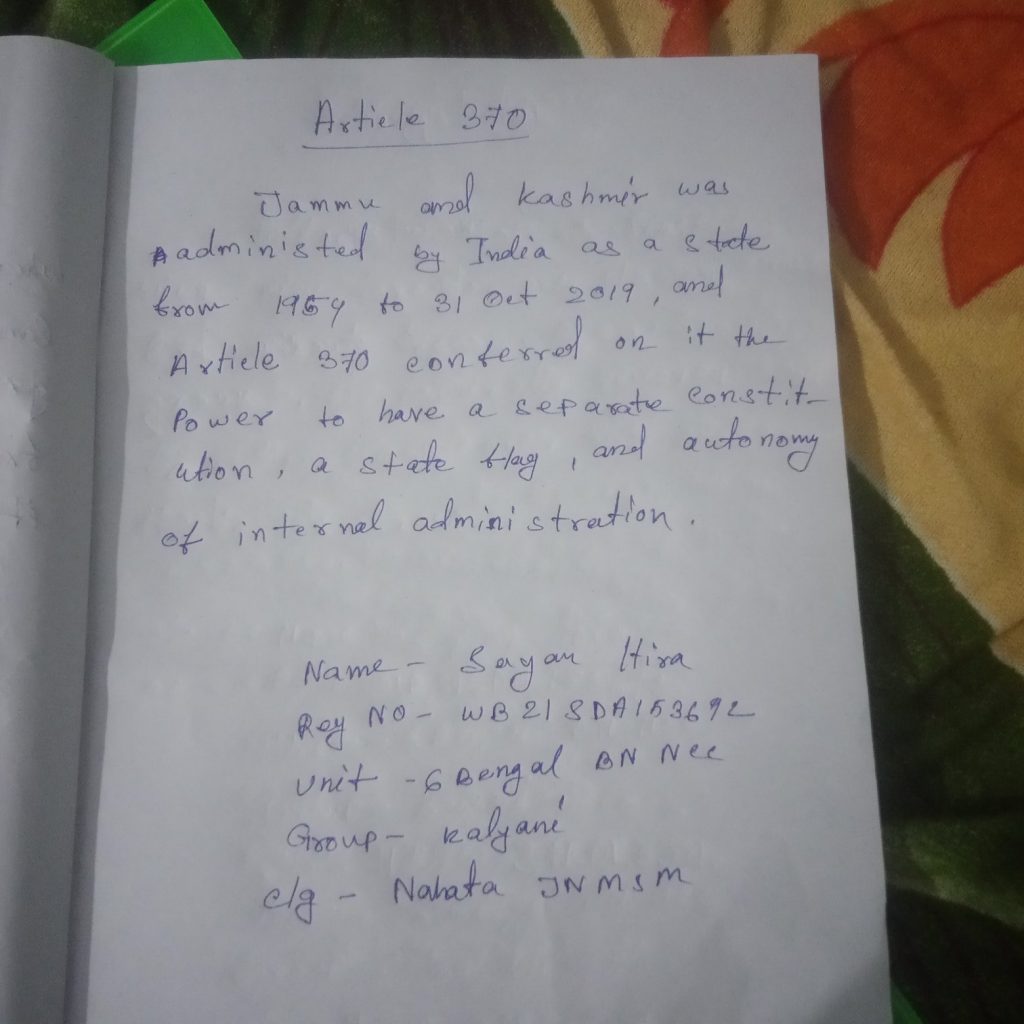 Article 370
Jammu and Kashmir was
administed by India as a state
from 1954 to 31 Oct 2019, and
Article 370 conferred on it the
Power to have a separate constit-
ution, a state flag, and autonomy
of internal administration.
Name - Sayan Hira
Reg NO - WB21SDA153692
Unit - 6 Bengal BN Ncc
Group - Kalyani
clg - Nahata JNMSM